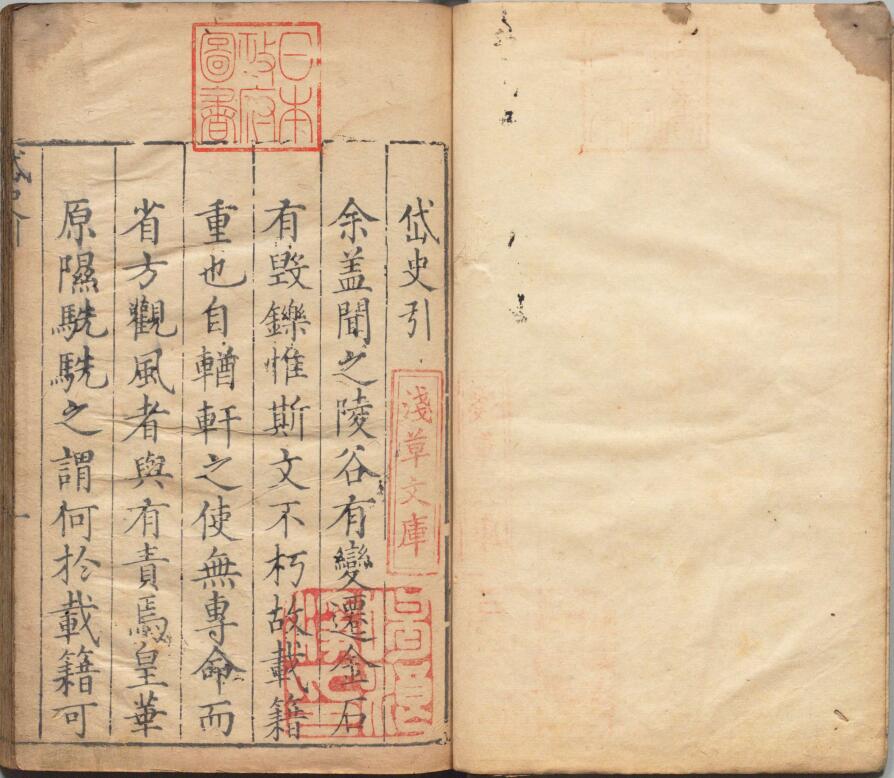 岱史引
余盖聞之陵谷有變遷金石
有毀鑠惟斯文不朽故載籍
重也自輶軒之使無專命而
省方觀風者與有責焉皇華
原隰駪駪之謂何於載籍可
日本
政府
圖書
淺草文庫